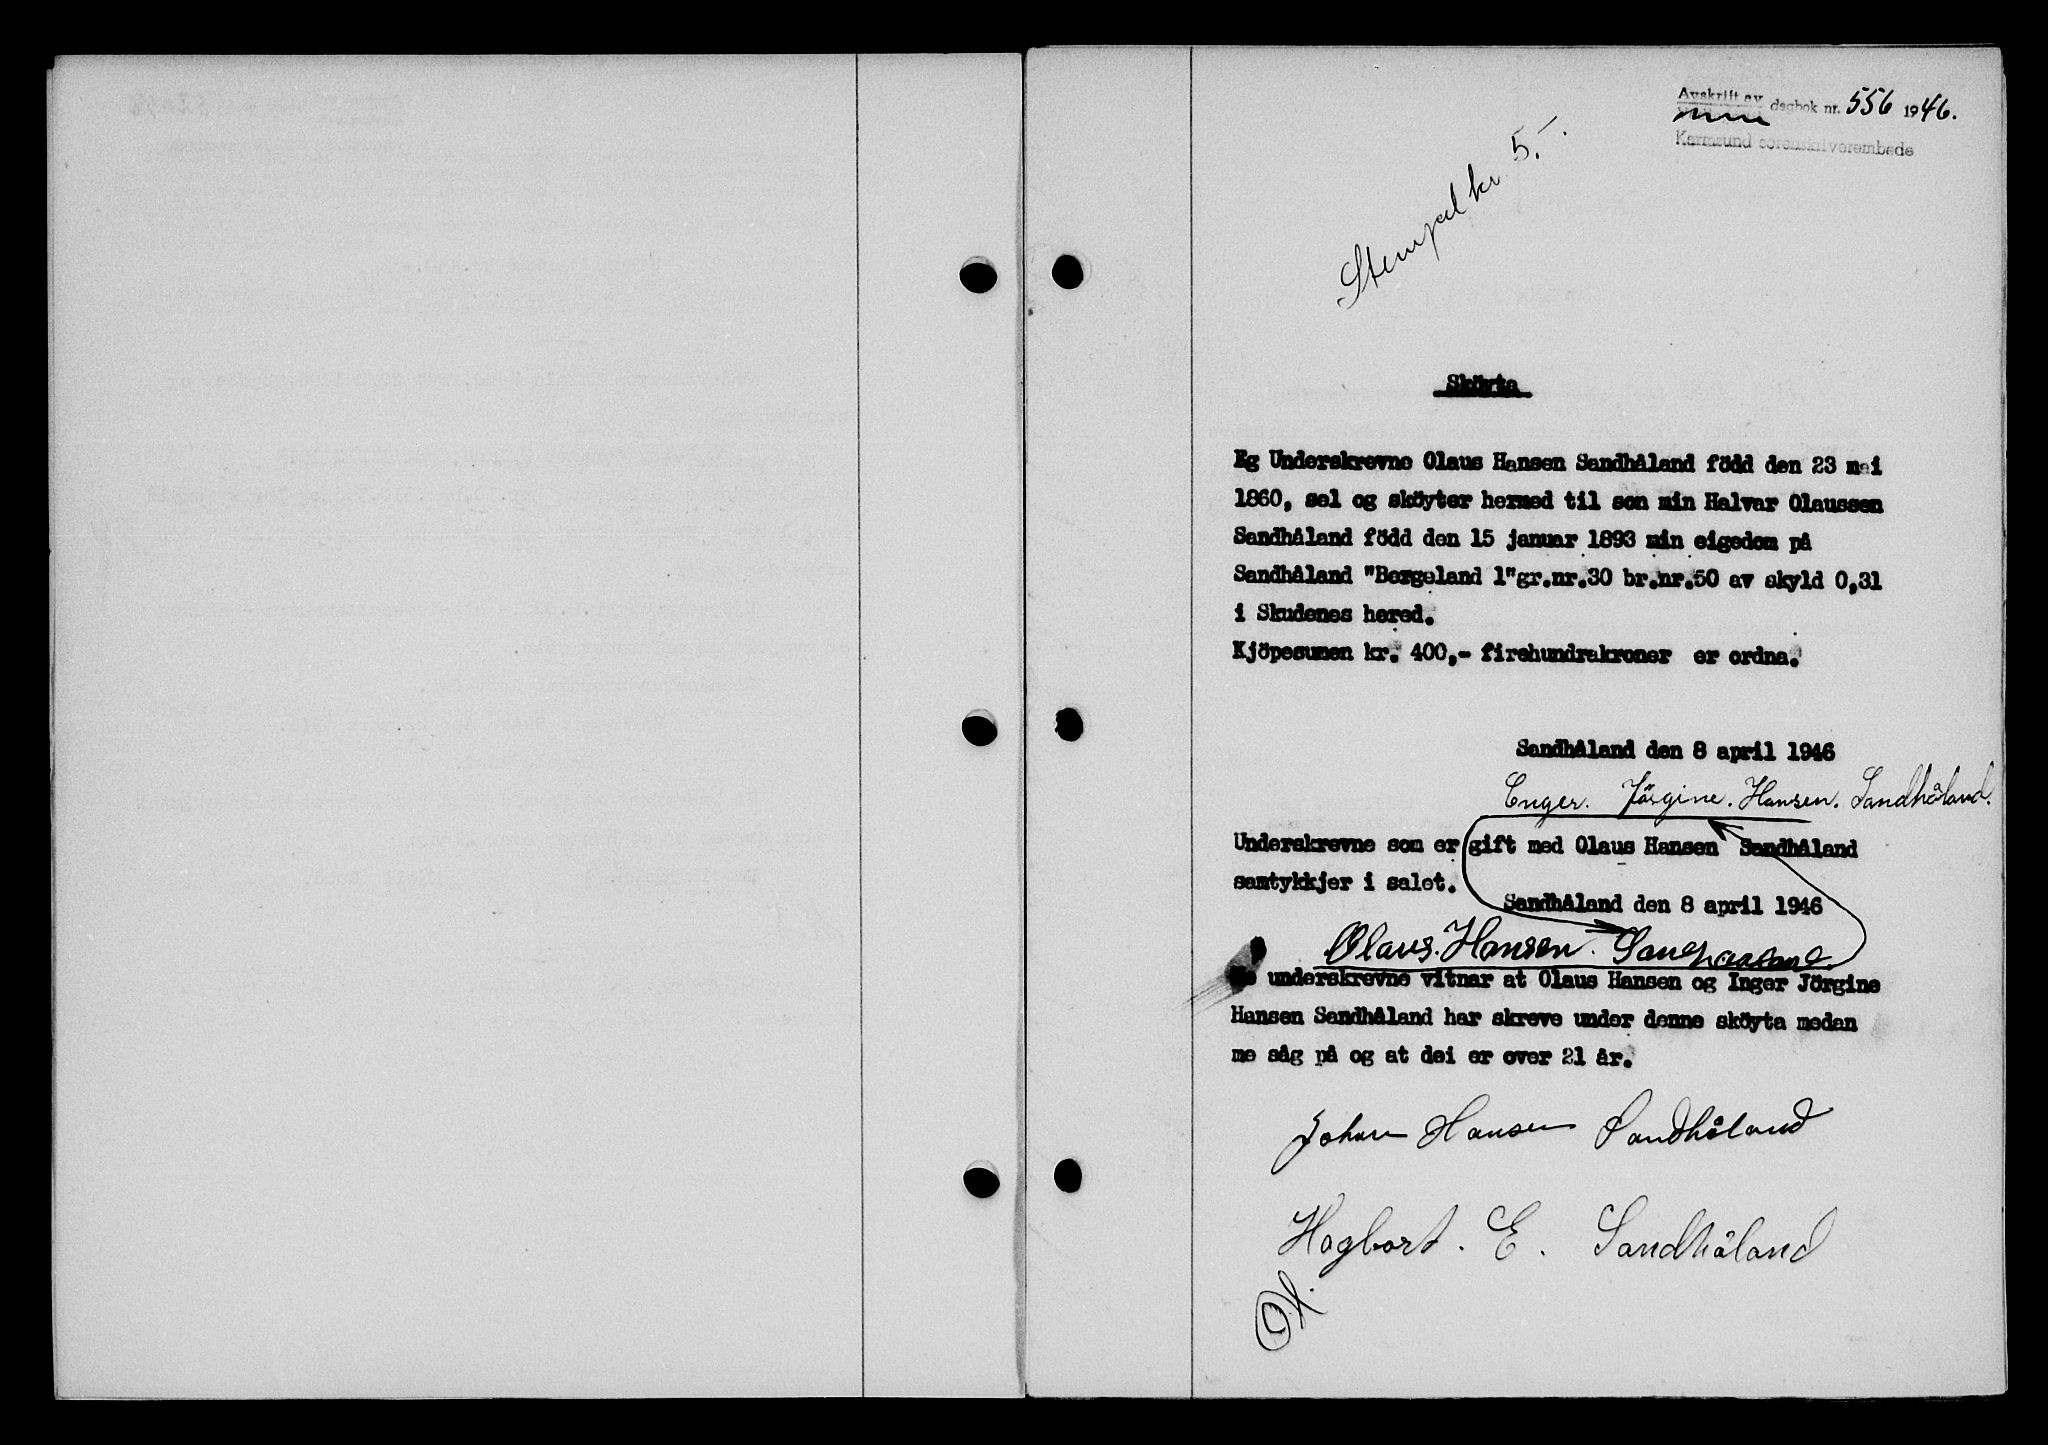 Avskrift av
dagbok nr. 556 1946.
Karmsund sorenskriverembede
Stempel kr 5.-.
Sköyta
Eg Underskrevne Olaus Hansen Sandhåland född den 23 mai
1860, sel og sköyter hermed til son min Halvar Olaussen
Sandhåland född den 15 januar 1893 min eigedom på
Sandhåland "Bergeland 1"gr.nr.30 br.nr.50 av skyld 0,31
i Skudenes hered.
Kjöpesumen kr. 400,- firehundrakroner er ordna.
Sandhåland den 8 april 1946
Enger. Jörgine. Hansen. Sandhåland.
Underskrevne som er gift med Olaus Hansen Sandhåland
samtykkjer i salet.
Sandhåland den 8 april 1946
Olaus. Hansen. Sandhaaland.
Me underskrevne vitnar at Olaus Hansen og Inger Jörgine
Hansen Sandhåland har skreve under denne sköyta medan
me såg på og at dei er over 21 år.
Johan Hansen Sandhåland
Hagbart. E. Sandhåland